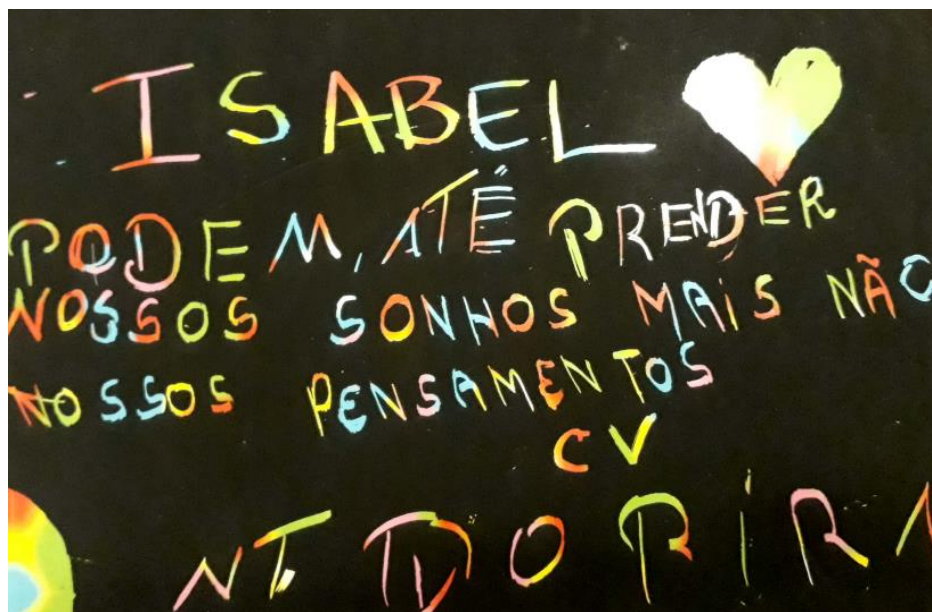 ISABEL
PODEM, ATÉ PRENDER
NOSSOS SONHOS MAIS NÃO
NOSSOS PENSAMENTOS
CV
NT DO